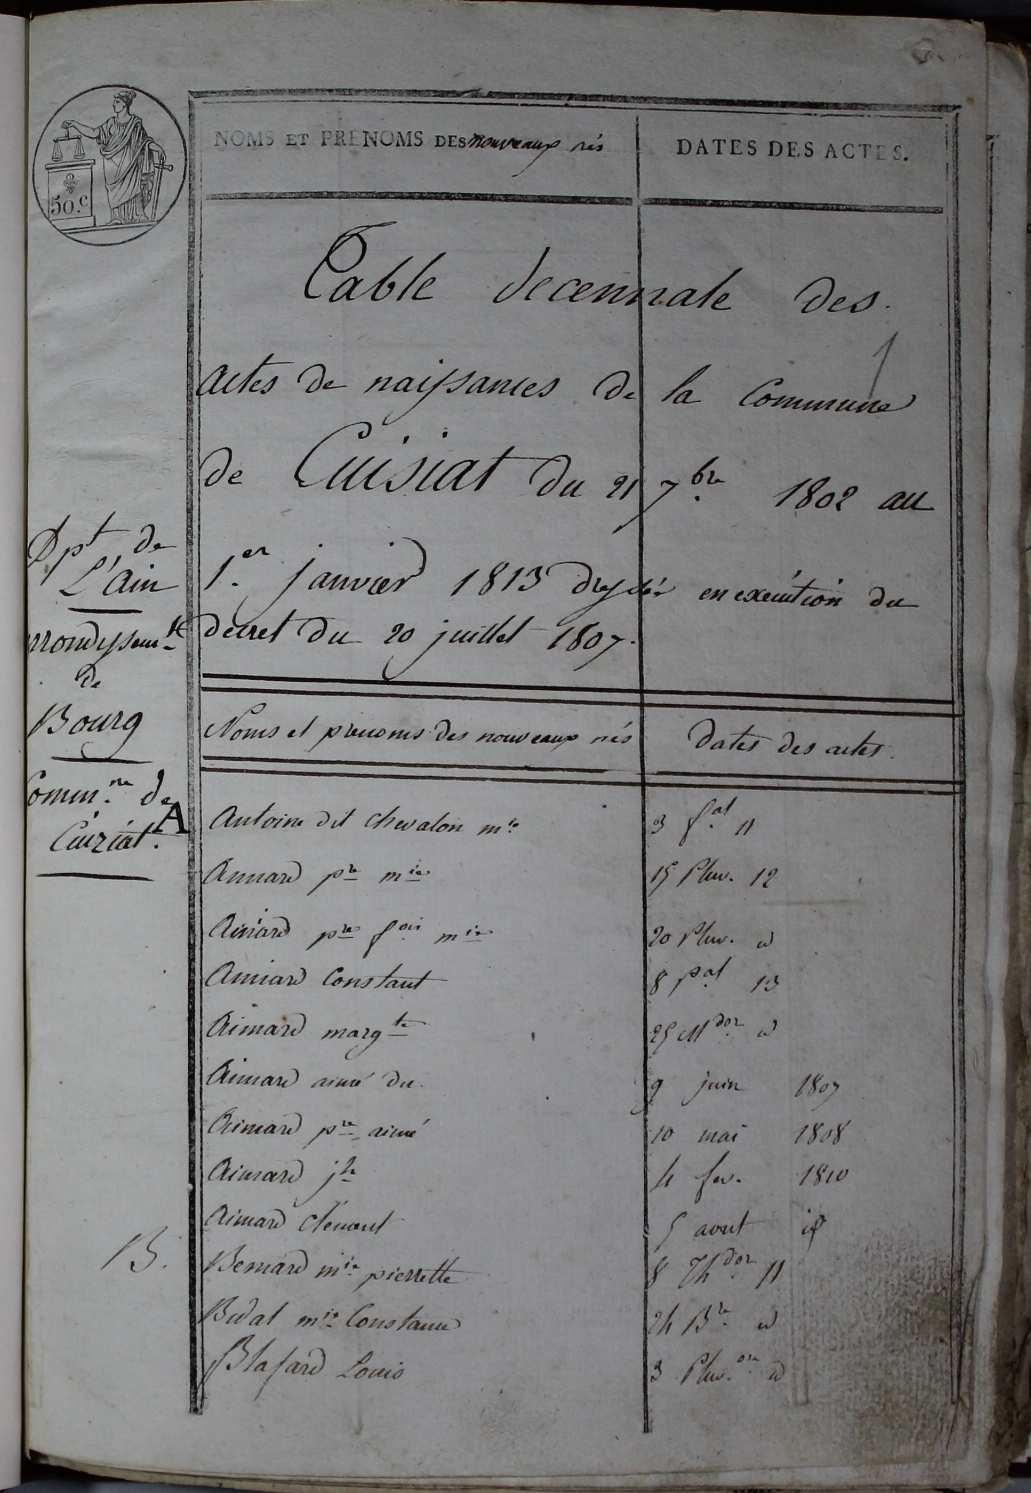 50.c
NOMS ET PRENOMS DES nouveaux nés
DATES DES ACTES.
Table decennale des
actes de naissances de la Commune
de Cuisiat du 21 7bre 1802 au
1er janvier 1813 dressée en exécution du
decret du 20 juillet 1807.
Dpt de
L'Ain
rrondissemt
de
Bourg
Commne de
Cuiziat.
Noms et prenoms des nouveaux nés
dates des actes.
A
Antoine dit chevalon mie 3 fal 11
Aimard pre mie 15 Pluv. 12
Aimard pre fois mie 20 Pluv. id
Aimard Constant 8 pal 13
Aimard margte 25 Mdor id
Aimard aimé du 9 juin 1807
Aimard pre aimé 10 mai 1808
Aimard jh 4 fev. 1810
Aimard clément 5 aout id
B. Bernard mie pierrette 8 Thdor 11
Bidal mie Constance 24 Bre id
Blasard Louis 3 Pluv.ose id